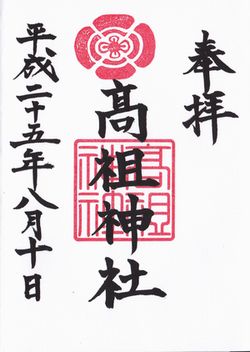 奉拝
髙祖神社
髙祖神社
平成二十五年八月十日